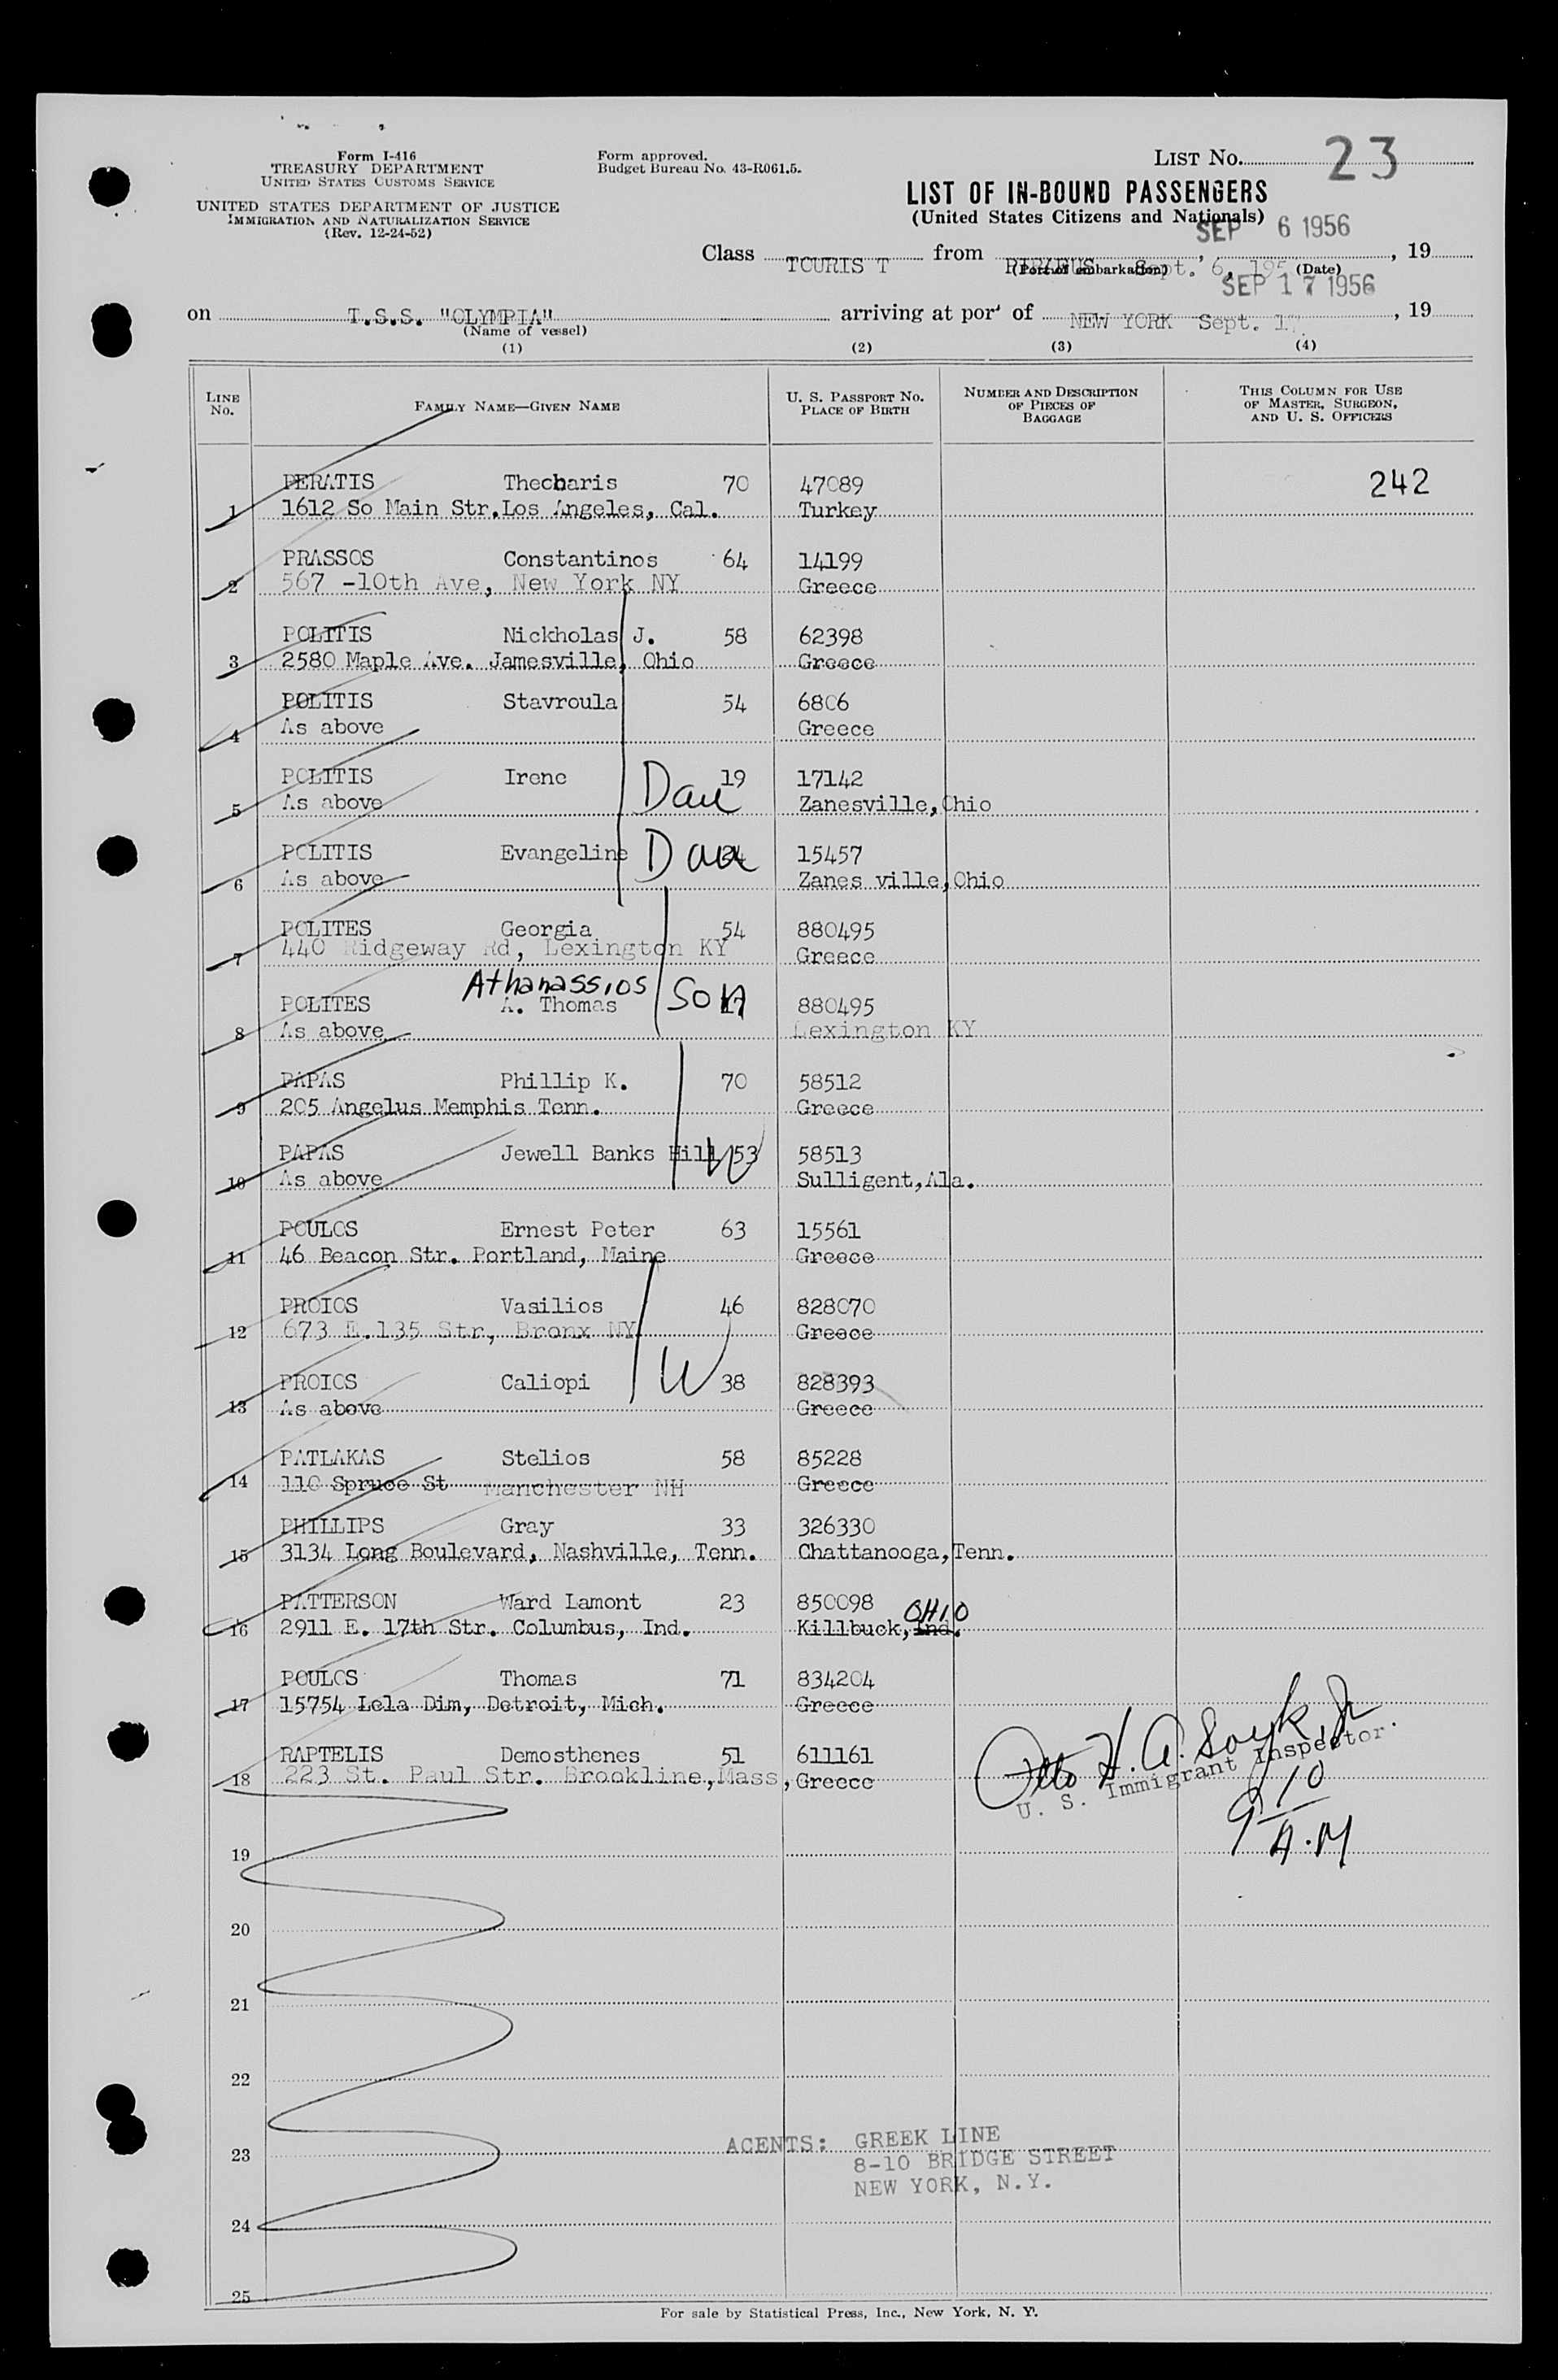 Form I-416
TREASURY DEPARTMENT
UNITED STATES CUSTOMS SERVICE
UNITED STATES DEPARTMENT OF JUSTICE
IMMIGRATION AND NATURALIZATION SERVICE
(Rev. 12-24-52)
Form approved.
Budget Bureau No. 43-R061.5.
LIST No. 23
LIST OF IN-BOUND PASSENGERS
(United States Citizens and Nationals)
SEP 6 1956
Class TOURIS T from PIRAEUS Sept. 6, 195 , 19
(Port of embarkation) (Date)
SEP 17 1956
on T.S.S. "OLYMPIA" arriving at port of NEW YORK Sept. 17 , 19
(Name of vessel)
(1) (2) (3) (4)
LINE No. FAMILY NAME—GIVEN NAME U. S. PASSPORT No. PLACE OF BIRTH NUMBER AND DESCRIPTION OF PIECES OF BAGGAGE THIS COLUMN FOR USE OF MASTER, SURGEON, AND U. S. OFFICERS
PERATIS Theoharis 70 47089 242
1 1612 So Main Str.Los Angeles, Cal. Turkey
PRASSOS Constantinos 64 14199
2 567 -10th Ave, New York NY Greece
POLITIS Nickholas J. 58 62398
3 2580 Maple Ave. Jamesville, Ohio Greece
POLITIS Stavroula 54 6806
4 As above Greece
POLITIS Irene Dau 19 17142
5 As above Zanesville,Ohio
POLITIS Evangeline Dau 15457
6 As above Zanes ville,Ohio
POLITES Georgia 54 880495
7 440 Ridgeway Rd, Lexington KY Greece
Athanassios
POLITES A. Thomas Son 880495
8 As above Lexington KY
PAPAS Phillip K. 70 58512
9 205 Angelus Memphis Tenn. Greece
PAPAS Jewell Banks Hill W 53 58513
10 As above Sulligent,Ala.
POULOS Ernest Peter 63 15561
11 46 Beacon Str. Portland, Maine Greece
PROIOS Vasilios 46 828070
12 673 E.135 Str, Bronx NY Greece
PROIOS Caliopi W 38 828393
13 As above Greece
PATLAKAS Stelios 58 85228
14 110 Spruce St Manchester NH Greece
PHILLIPS Gray 33 326330
15 3134 Long Boulevard, Nashville, Tenn. Chattanooga,Tenn.
PATTERSON Ward Lamont 23 850098
OHIO
16 2911 E. 17th Str. Columbus, Ind. Killbuck, Ind.
POULOS Thomas 71 834204
17 15754 Lela Dim, Detroit, Mich. Greece
RAPTELIS Demosthenes 51 611161
18 223 St. Paul Str. Brookline,Mass, Greece
Otto H. A. Soyk, Jr
U. S. Immigrant Inspector.
9 10
A.M
19
20
21
22
23
AGENTS: GREEK LINE
8-10 BRIDGE STREET
NEW YORK, N.Y.
24
25
For sale by Statistical Press, Inc., New York, N. Y.